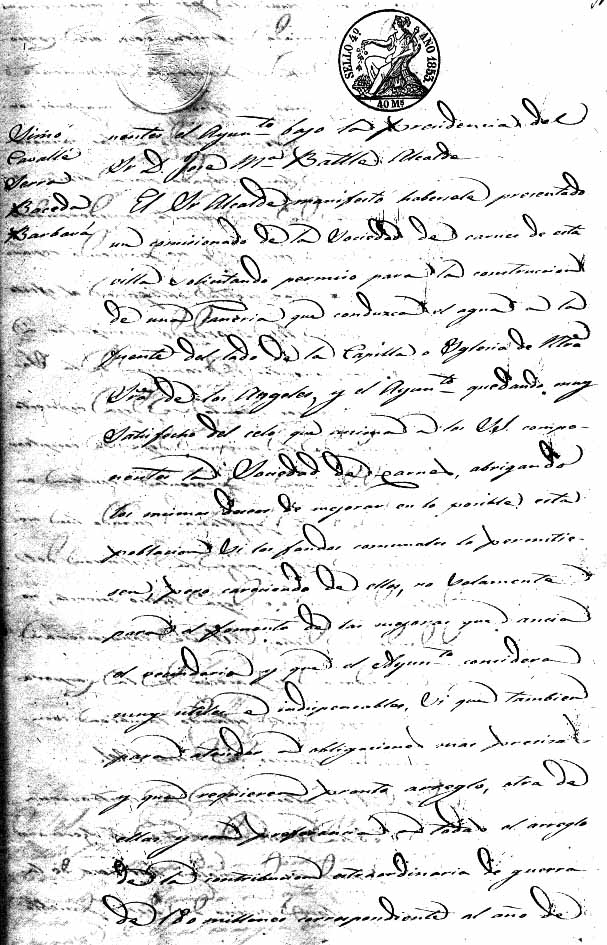 SELLO 4º AÑO 1853.
40 Ms
Simó
Cavallé
Serra
Boceda
Barbará
nentes el Ayunto bajo la Precidencia del
Sr D. José Ma Batlle Alcalde
El Sr Alcalde manifestó habersele presentado
un comicionado de la Sociedad de carnes de esta
villa solicitando permiso para la construccion
de una cañeria que conduzca el agua a la
fuente del lado de la Capilla o Yglecia de Ntra
Sra de los Angeles, y el Ayunto quedando muy
satisfecho del celo que anima a los SS. compo-
nentes la Sociedad de carnes, abrigando
los mismos deseos de mejorar en lo posible esta
poblacion si los fondos comunales lo permitie-
sen, pero careciendo de ellos, no solamente
para el fomento de las mejoras que ancia
el vecindario y que el Ayunto considera
muy utiles e indispensables, si que tambien
para atender a obligaciones mas precisas
y que requieren pronto arreglo, otra de
ellas y con preferencia a todas el arreglo
de la contribucion extraordinaria de guerra
de 180 millones correspondiente al año de